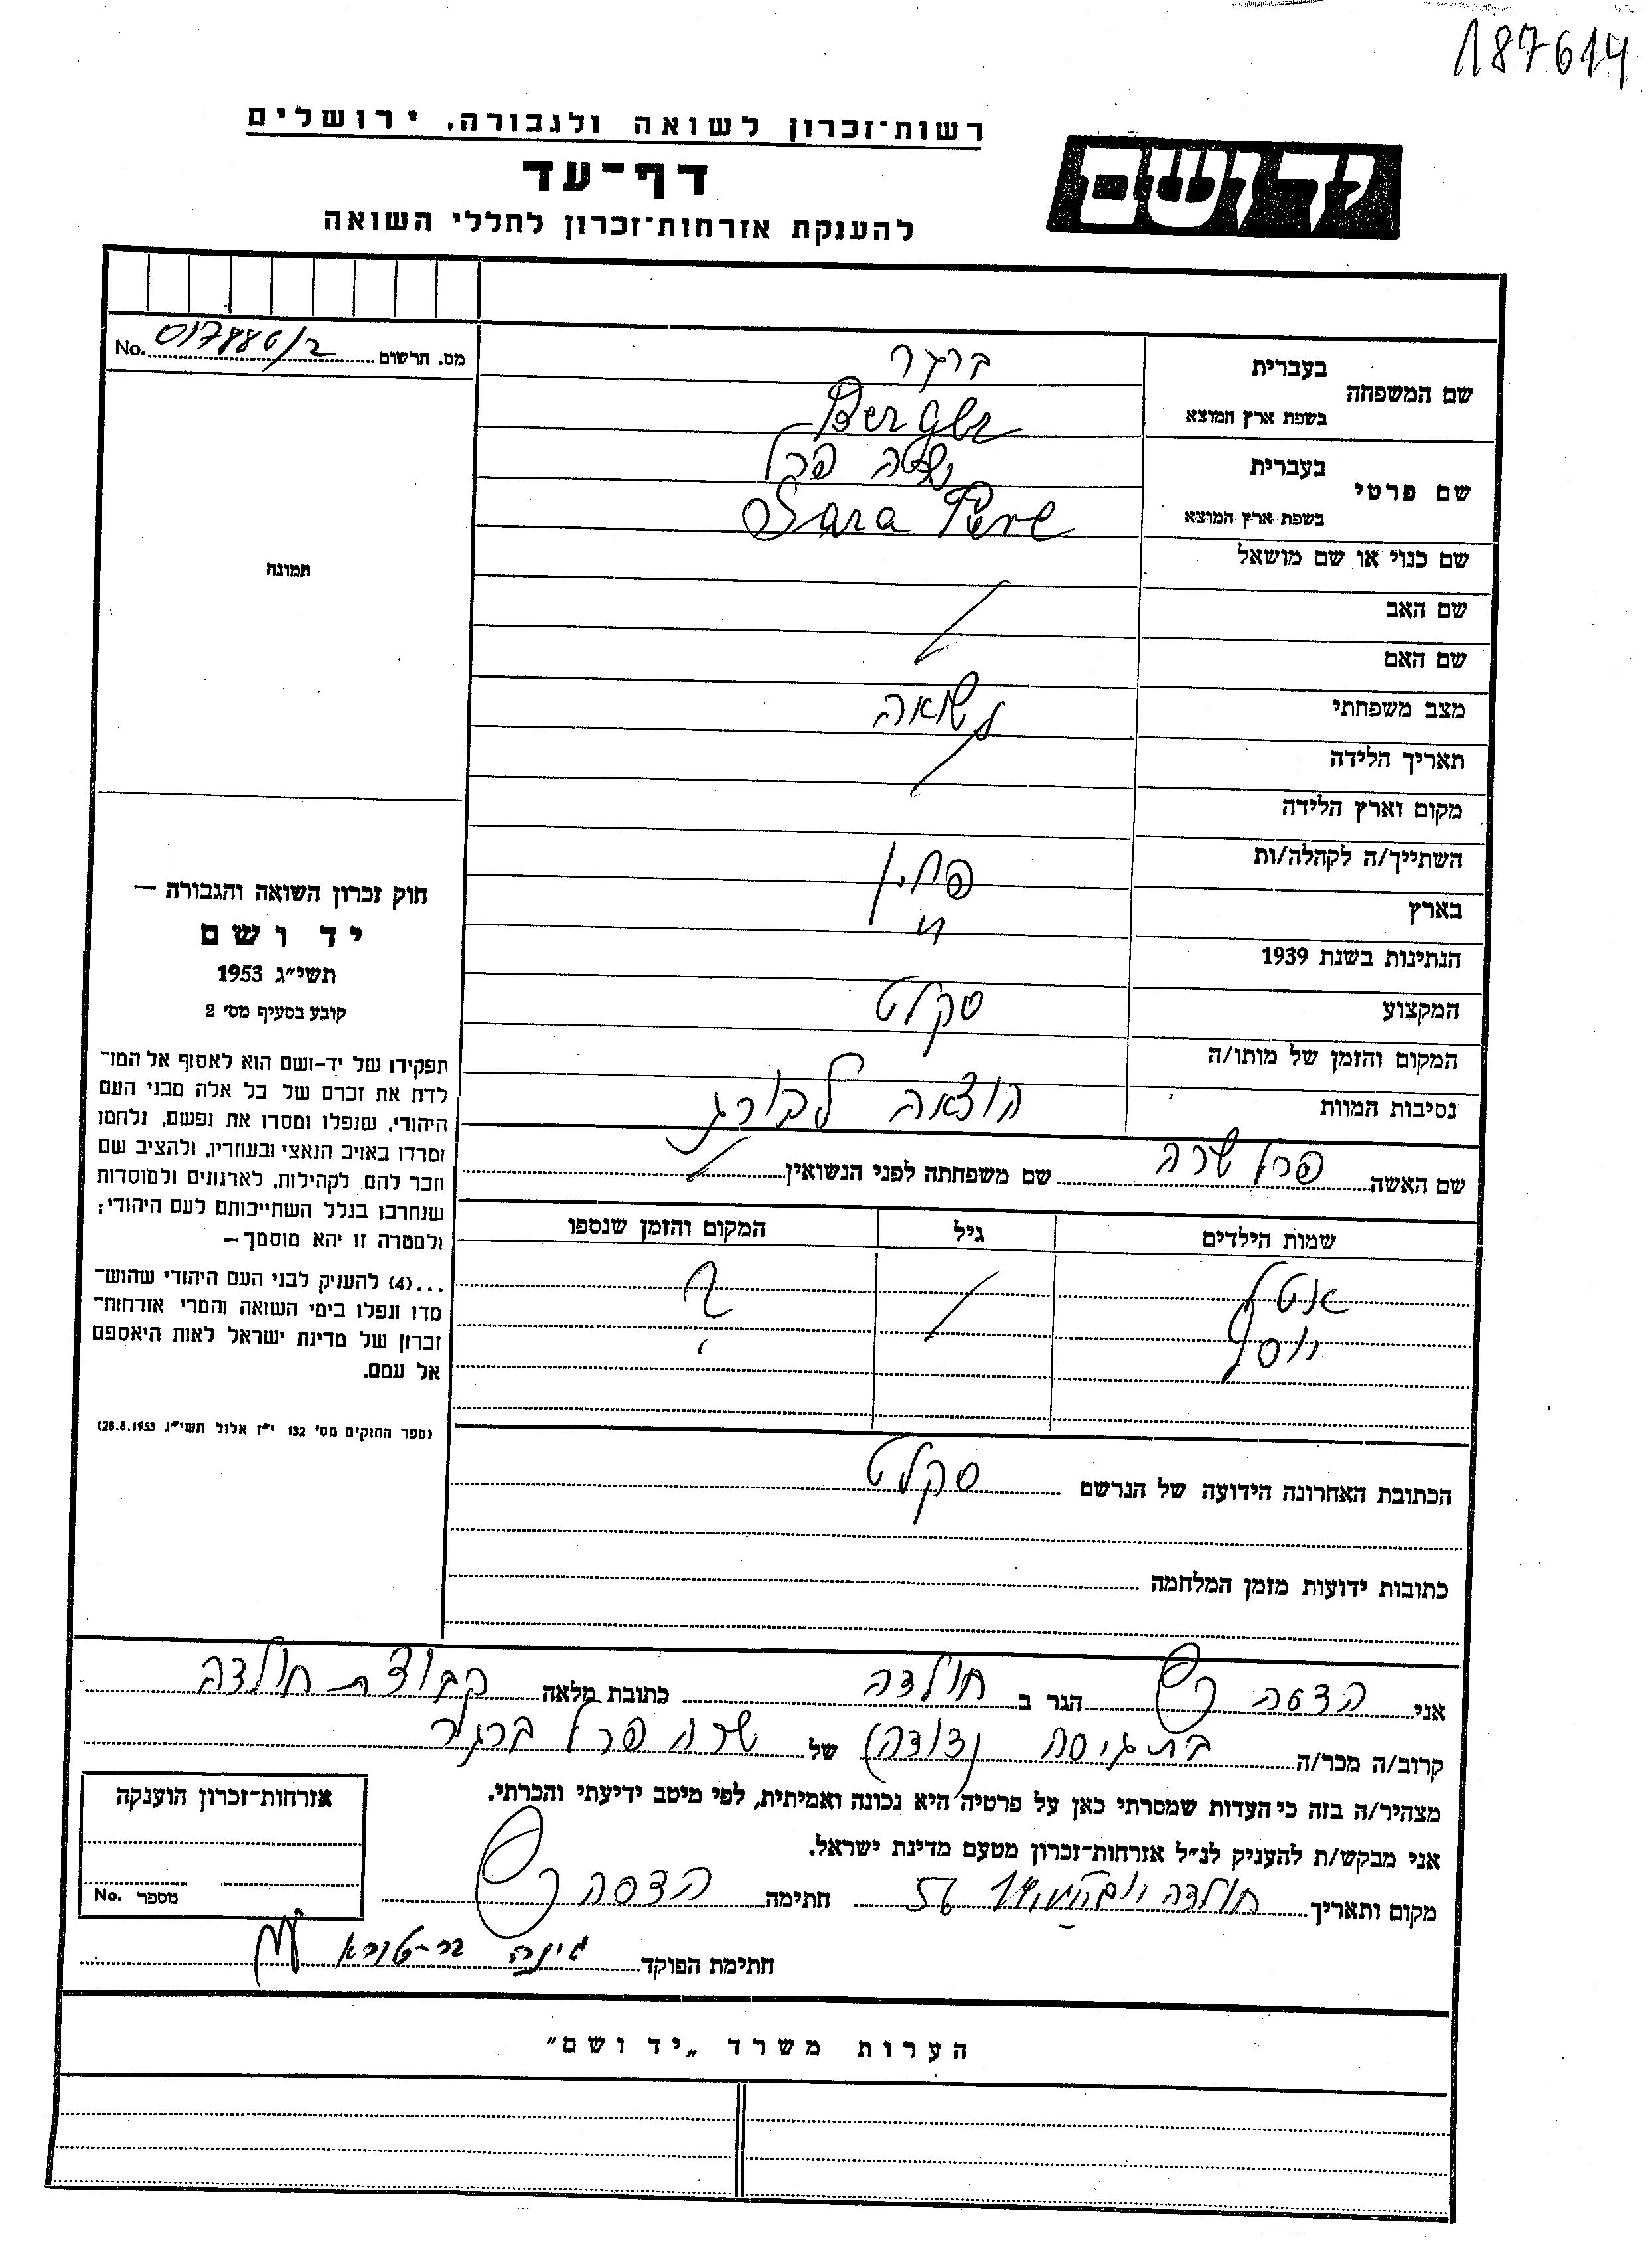 187614
רשות־זכרון לשואה ולגבורה, ירושלים
דף־עד
להענקת אזרחות־זכרון לחללי השואה
יד ושם
מס. תרשום 017886/2 No.
שם המשפחה
בעברית ברגר
בשפת ארץ המוצא Berger
שם פרטי
בעברית פרל
בשפת ארץ המוצא Sara
שם כנוי או שם מושאל
שם האב
שם האם
מצב משפחתי נשואה
תאריך הלידה
מקום וארץ הלידה
השתייך/ה לקהלה/ות
בארץ פולין
הנתינות בשנת 1939 "
המקצוע סקלט
המקום והזמן של מותו/ה
נסיבות המוות הוצאה להורג
תמונת
חוק זכרון השואה והגבורה —
יד ושם
תשי״ג 1953
קובע בסעיף מס׳ 2
תפקידו של יד-ושם הוא לאסוף אל המו־
לדת את זכרם של כל אלה מבני העם
היהודי, שנפלו ומסרו את נפשם, נלחמו
ומרדו באויב הנאצי ובעוזריו, ולהציב שם
וזכר להם, לקהילות, לארגונים ולמוסדות
שנחרבו בגלל השתייכותם לעם היהודי;
ולמטרה זו יהא מוסמך —
...(4) להעניק לבני העם היהודי שהוש־
מדו ונפלו בימי השואה והמרי אזרחות־
זכרון של מדינת ישראל לאות היאספם
אל עמם.
(ספר החוקים מס׳ 132 י״ז אלול תשי״ג 28.8.1953)
שם האשה פרל שרה שם משפחתה לפני הנשואין
שמות הילדים גיל המקום והזמן שנספו
?
יוסף "
הכתובת האחרונה הידועה של הנרשם סקלט
כתובות ידועות מזמן המלחמה
אני הדסה הגר ב חולדה כתובת מלאה קבוצת חולדה
קרוב/ה מכר/ה בת גיסה (דודה) של שרה פרל ברגר
מצהיר/ה בזה כי העדות שמסרתי כאן על פרטיה היא נכונה ואמיתית, לפי מיטב ידיעתי והכרתי.
אני מבקש/ת להעניק לנ״ל אזרחות־זכרון מטעם מדינת ישראל.
מקום ותאריך חולדה 56 חתימה הדסה
חתימת הפוקד
אזרחות־זכרון הוענקה
מספר No.
הערות משרד „יד ושם״